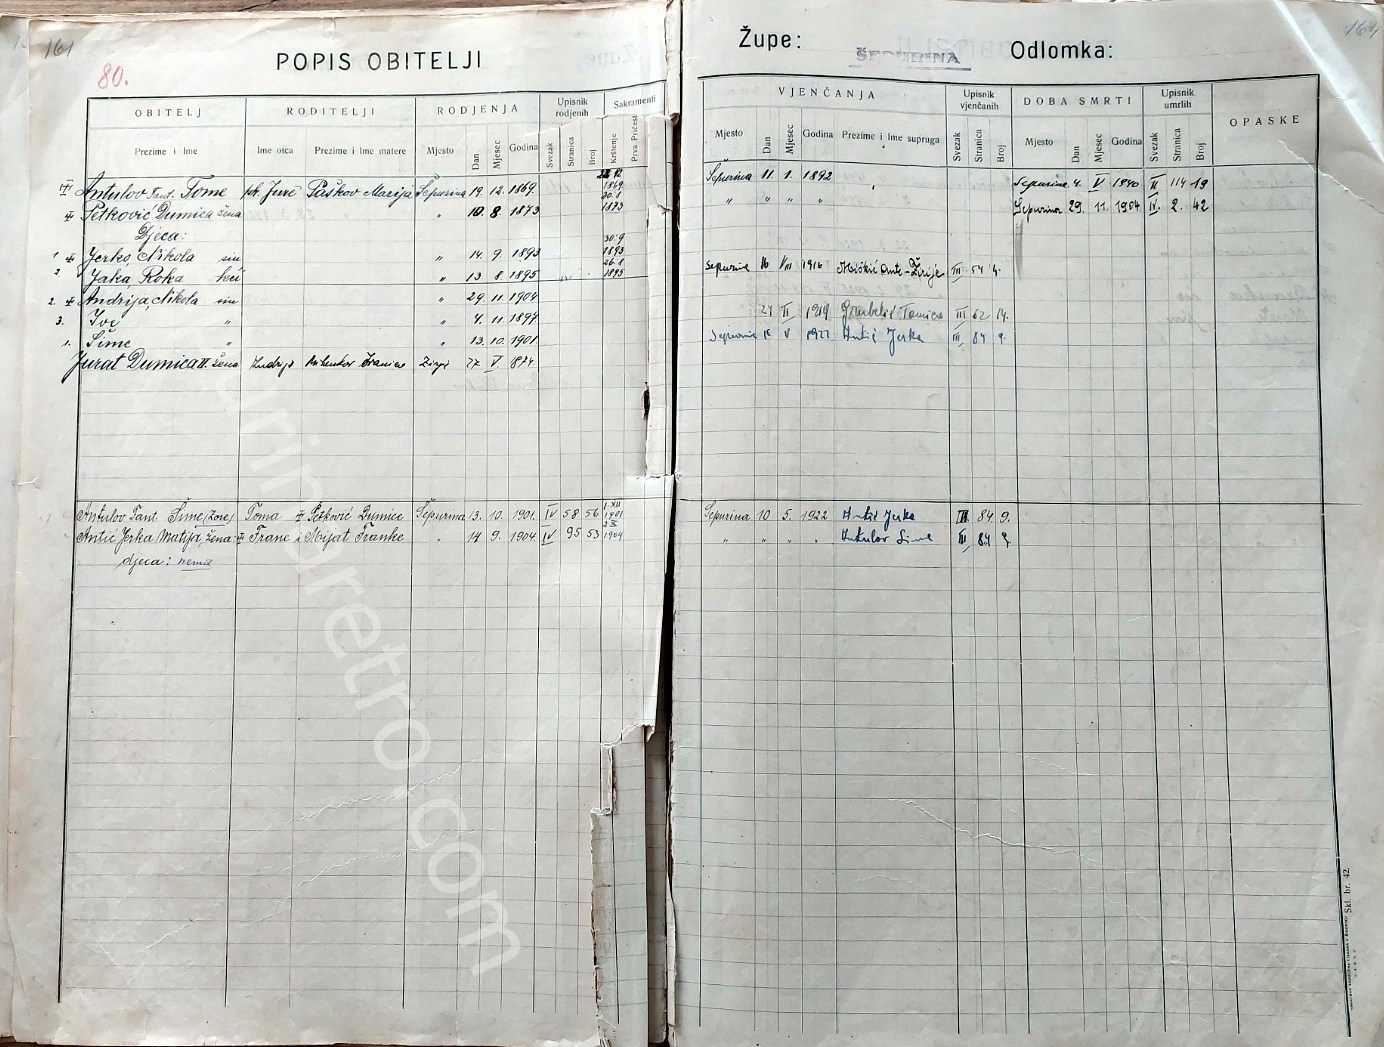 161
80.
POPIS OBITELJI
Župe:
ŠEPURINA
Odlomka:
164
OBITELJ
RODITELJI
RODJENJA
Upisnik rodjenih
Sakramenti
Prezime i Ime
Ime otca
Prezime i Ime matere
Mjesto
Dan
Mjesec
Godina
Svezak
Stranica
Broj
Krštenje
Prva Pričest
VJENČANJA
Upisnik vjenčanih
DOBA SMRTI
Upisnik umrlih
OPASKE
Mjesto
Dan
Mjesec
Godina
Prezime i Ime supruga
Svezak
Stranica
Broj
Mjesto
Dan
Mjesec
Godina
Svezak
Stranica
Broj
Antulov Fant. Tome pk. Jure Paškov Marija Šepurina 19. 12. 1869 1869 Šepurina 11. 1. 1892 Šepurina 4. V 1940 II 114 19
Petković Dumica žena " 10. 8. 1873 20.8 1873 " " " " Šepurina 29. 11. 1904 IV. 2. 42
Djeca:
1 Jerko, Nikola sin " 14. 9. 1893 30.9 1893
2 Jaka Roka kći " 13. 8. 1895 26.8 1895 Šepurina 16 VIII 1916 Ante-Žirje III 54 4.
2. Andrija, Nikola sin " 29. 11. 1904
3. Ive " " 4. 11. 1897 27 II 1919 Tomica III 62 14.
1. Šime " 13. 10. 1901. Šepurina V 1922 Antić Jerka III 84 9.
Jurat Dumica II. žena Andrija Franica 27 V. 1874.
Antulov Fant. Šime (Zore) Toma Petković Dumice Šepurina 3. 10. 1901. IV 58 56 1. XII 1901 Šepurina 10 5. 1922 Antić Jerka III 84. 9.
Antić Jerka Matija, žena Frane i Mijat Franke " 14 9. 1904. IV 95 53 1904 " " " " Antulov Šime III, 84 9.
djeca: nema
Skl. br. 42.
turinsretro.com